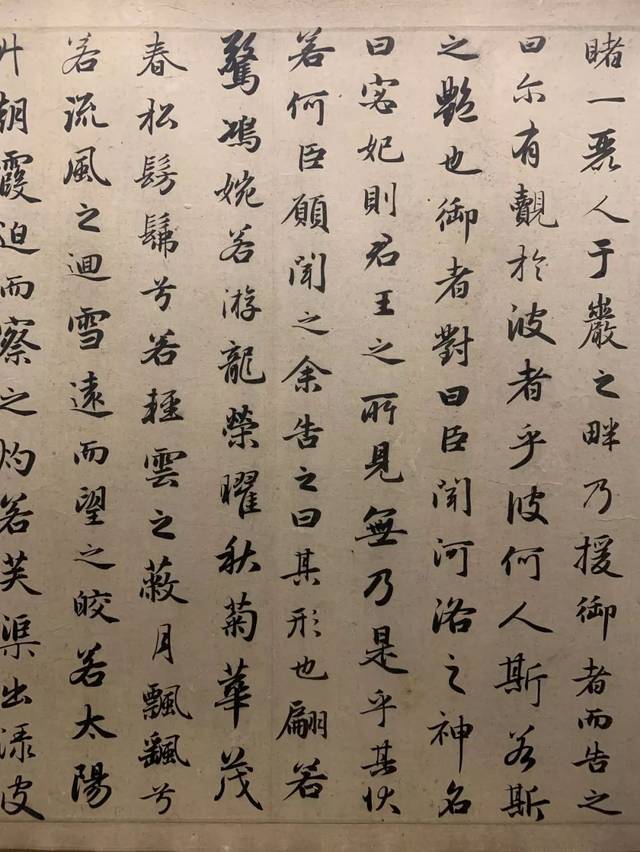 睹一麗人于巖之畔乃援御者而告之
曰尔有覿於彼者乎彼何人斯若斯
之艷也御者對曰臣聞河洛之神名
曰宓妃則君王之所見無乃是乎其狀
若何臣願聞之余告之曰其形也翩若
驚鴻婉若游龍榮曜秋菊華茂
春松髣髴兮若輕雲之蔽月飄飖兮
若流風之迴雪遠而望之皎若太陽
升朝霞迫而察之灼若芙渠出淥波